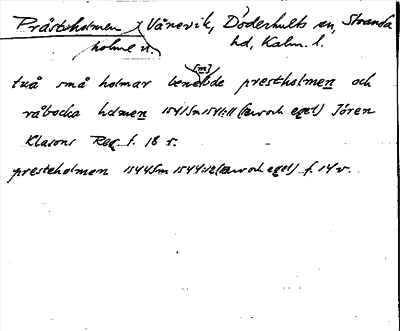 Prästholmen, Vånevik, Döderhults sn, Stranda
holme n. hd, Kalm. l.
[m]
två små holmar benede prestholmen och
råbocka holmen 1541 Sm 1541:11 (arv och eget) Jören
Klasons Reg. f. 18 r.
presteholmen 1544 Sm 1544:12 (arv och eget) f. 14 v.